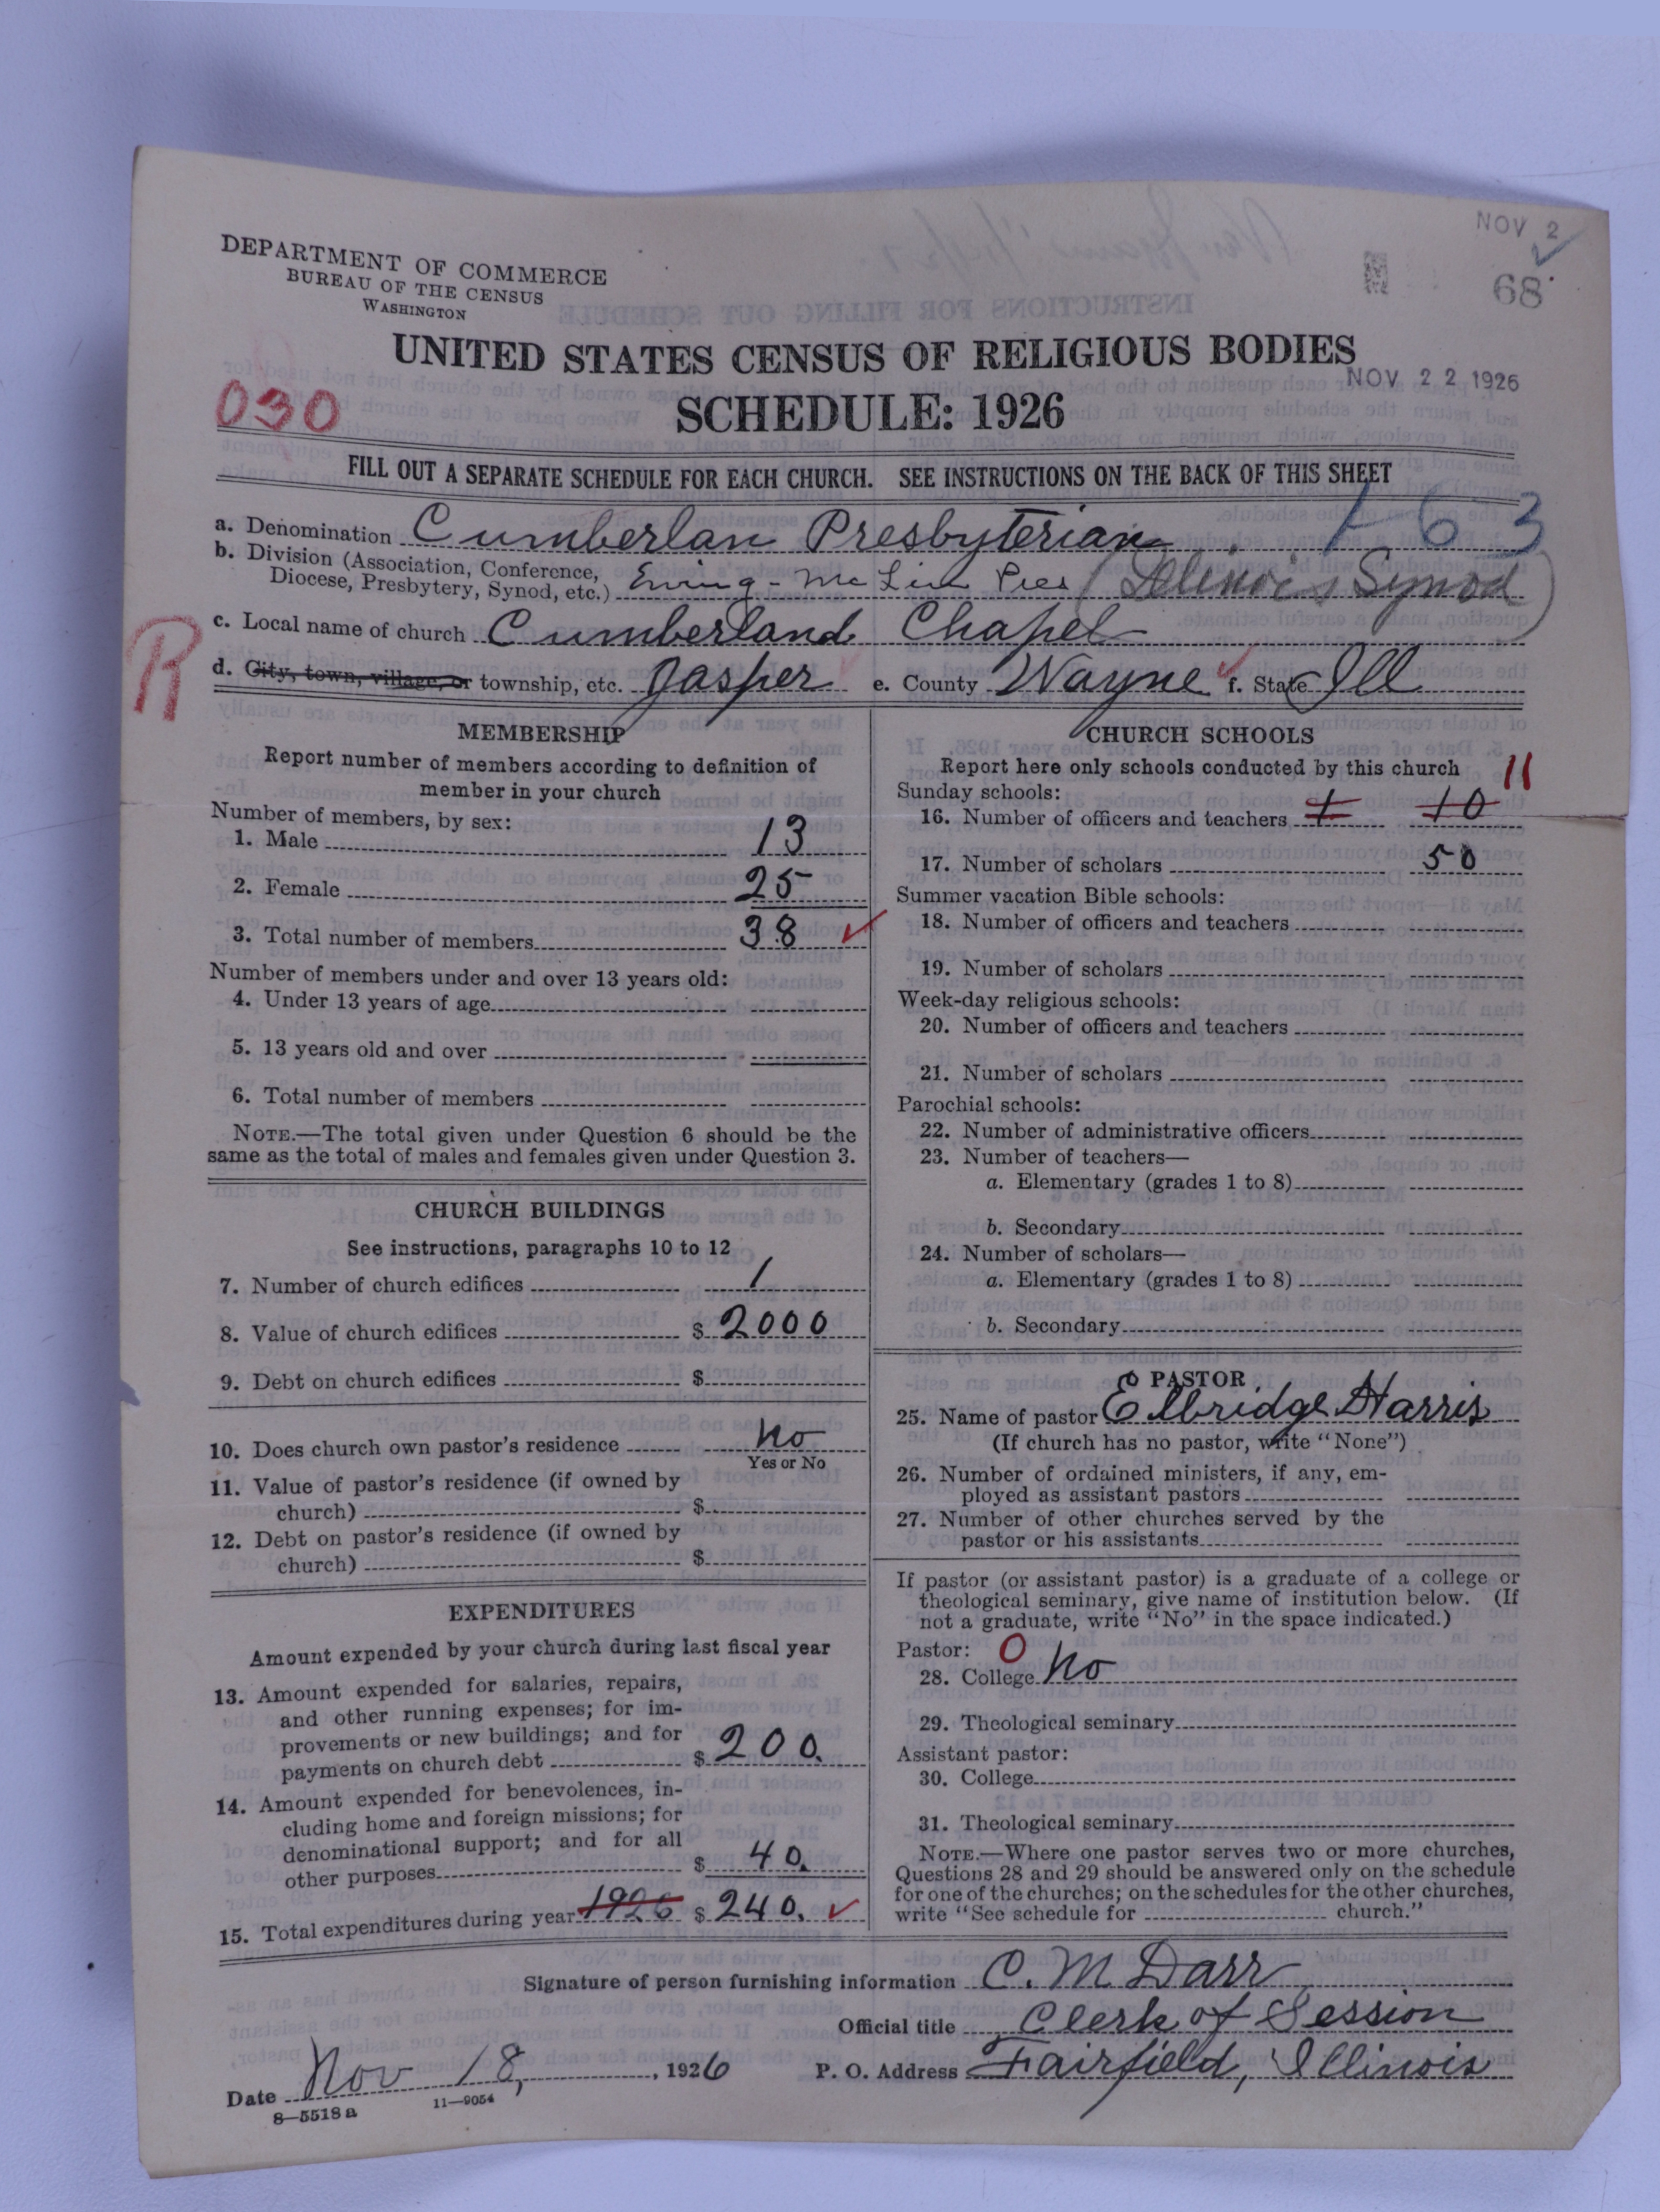 NOV 2
68
DEPARTMENT OF COMMERCE
BUREAU OF THE CENSUS
WASHINGTON
UNITED STATES CENSUS OF RELIGIOUS BODIES
NOV 22 1926
030
SCHEDULE: 1926
FILL OUT A SEPARATE SCHEDULE FOR EACH CHURCH. SEE INSTRUCTIONS ON THE BACK OF THIS SHEET
a. Denomination Cumberlan Presbyterian 1 6 3
b. Division (Association, Conference,
Diocese, Presbytery, Synod, etc.) Ewing - Mc Lin Pres (Illinois Synod)
c. Local name of church Cumberland Chapel
R
d. City, town, village, or township, etc. Jasper e. County Wayne f. State Ill
MEMBERSHIP
Report number of members according to definition of
member in your church
Number of members, by sex:
1. Male 13
2. Female 25
3. Total number of members 38
Number of members under and over 13 years old:
4. Under 13 years of age
5. 13 years old and over
6. Total number of members
NOTE.—The total given under Question 6 should be the
same as the total of males and females given under Question 3.
CHURCH BUILDINGS
See instructions, paragraphs 10 to 12
7. Number of church edifices 1
8. Value of church edifices $ 2000
9. Debt on church edifices $
10. Does church own pastor's residence No
Yes or No
11. Value of pastor's residence (if owned by
church) $
12. Debt on pastor's residence (if owned by
church) $
EXPENDITURES
Amount expended by your church during last fiscal year
13. Amount expended for salaries, repairs,
and other running expenses; for im-
provements or new buildings; and for
payments on church debt $ 200.
14. Amount expended for benevolences, in-
cluding home and foreign missions; for
denominational support; and for all
other purposes $ 40.
15. Total expenditures during year 1926 $ 240.
CHURCH SCHOOLS
Report here only schools conducted by this church 11
Sunday schools:
16. Number of officers and teachers 1 10
17. Number of scholars 50
Summer vacation Bible schools:
18. Number of officers and teachers
19. Number of scholars
Week-day religious schools:
20. Number of officers and teachers
21. Number of scholars
Parochial schools:
22. Number of administrative officers
23. Number of teachers—
a. Elementary (grades 1 to 8)
b. Secondary
24. Number of scholars—
a. Elementary (grades 1 to 8)
b. Secondary
0 PASTOR
25. Name of pastor Elbridge Harris
(If church has no pastor, write "None")
26. Number of ordained ministers, if any, em-
ployed as assistant pastors
27. Number of other churches served by the
pastor or his assistants
If pastor (or assistant pastor) is a graduate of a college or
theological seminary, give name of institution below. (If
not a graduate, write "No" in the space indicated.)
Pastor: 0
28. College No
29. Theological seminary
Assistant pastor:
30. College
31. Theological seminary
NOTE.—Where one pastor serves two or more churches,
Questions 28 and 29 should be answered only on the schedule
for one of the churches; on the schedules for the other churches,
write "See schedule for church."
Signature of person furnishing information C. M Darr
Official title Clerk of Session
Date Nov 18, 1926 P. O. Address Fairfield, Illinois
8—5518a 11—9054